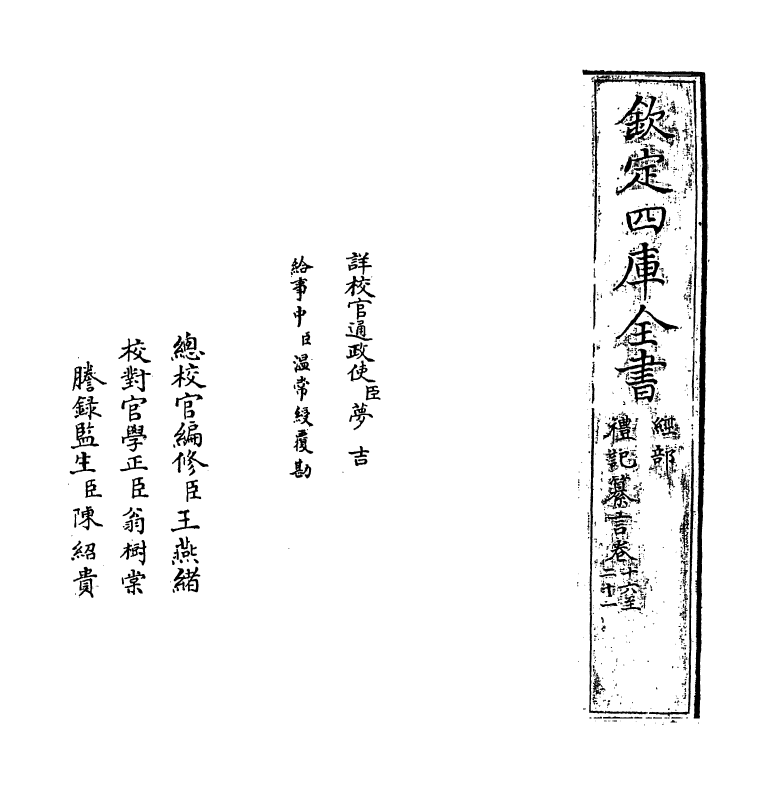 欽定四庫全書
經部
禮記纂言卷十六至
二十一
詳校官通政使臣夢吉
給事中臣温常綬覆勘
總校官編修臣王燕緒
校對官學正臣翁樹棠
謄録監生臣陳紹貴